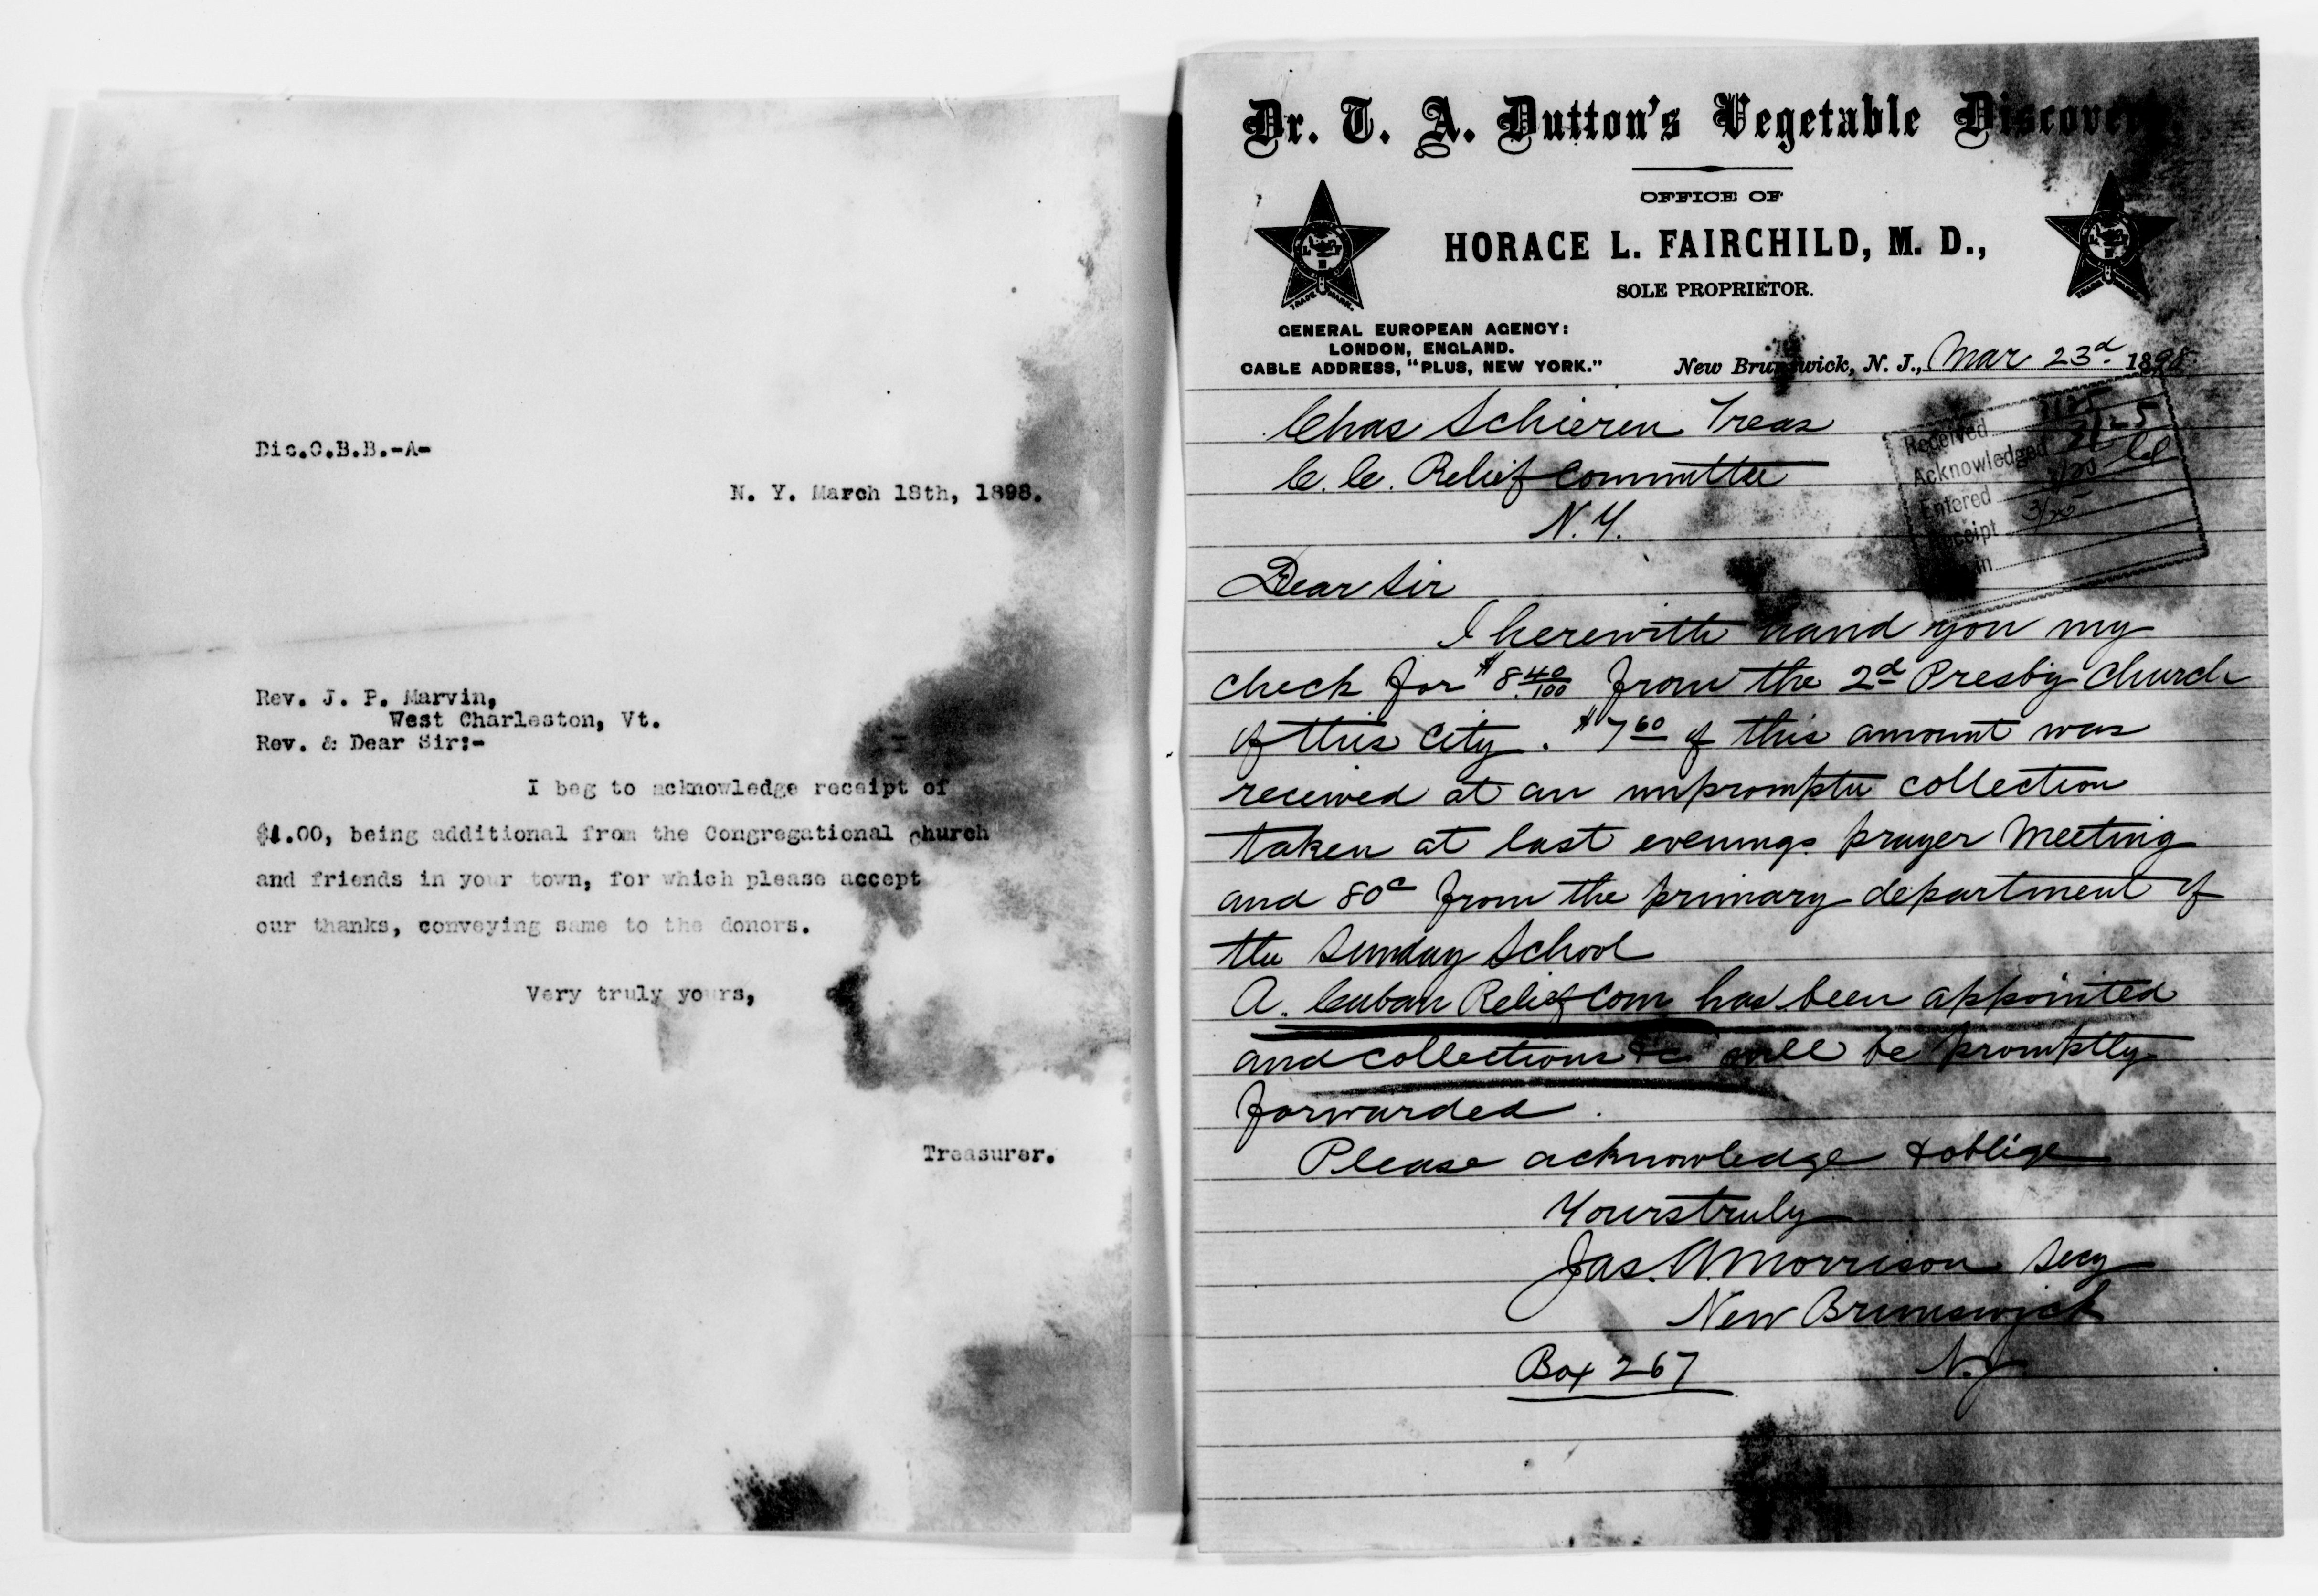 Dic.O.B.B.-A-
N. Y. March 18th, 1898.
Rev. J. P. Marvin,
West Charleston, Vt.
Rev. & Dear Sir:-
I beg to acknowledge receipt of
$1.00, being additional from the Congregational church
and friends in your town, for which please accept
our thanks, conveying same to the donors.
Very truly yours,
Treasurer.
Dr. T. A. Dutton's Vegetable Discovery.
OFFICE OF
HORACE L. FAIRCHILD, M. D.,
SOLE PROPRIETOR.
TRADE MARK
TRADE MARK
GENERAL EUROPEAN AGENCY:
LONDON, ENGLAND.
CABLE ADDRESS, "PLUS, NEW YORK."
New Brunswick, N. J., Mar 23d. 1898.
Chas Schieren Treas
C. C. Relief Committee
N.Y.
Received
Acknowledged
Entered
Receipt
Dear Sir
I herewith hand you my
check for $8.40/100 from the 2d Presby Church
of this City. $7 60 of this amount was
received at an impromptu collection
taken at last evenings prayer meeting
and 80c from the primary department of
the Sunday School
A. Cuban Relief Com has been appointed
and collections &c will be promptly
forwarded.
Please acknowledge & oblige
Yours truly
Jas. A. Morrison Secy
New Brunswick
Box 267 N.J.